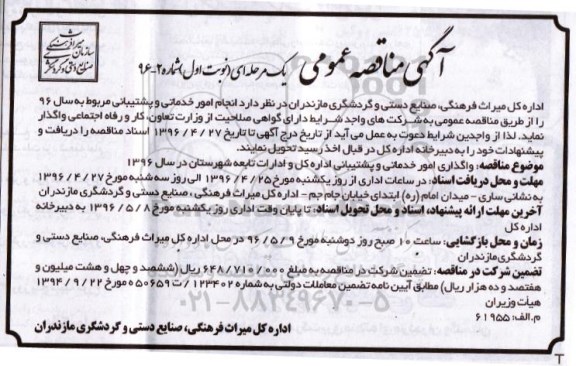 سازمان میراث فرهنگی
صنایع دستی و گردشگری
آگهی مناقصه عمومی یک مرحله ای (نوبت اول) شماره ۲-۹۶
اداره کل میراث فرهنگی، صنایع دستی و گردشگری مازندران در نظر دارد انجام امور خدماتی و پشتیبانی مربوط به سال ۹۶
را از طریق مناقصه عمومی به شرکت های واجد شرایط دارای گواهی صلاحیت از وزارت تعاون، کار و رفاه اجتماعی واگذار
نماید. لذا از واجدین شرایط دعوت به عمل می آید از تاریخ درج آگهی تا تاریخ ۱۳۹۶/۴/۲۷ اسناد مناقصه را دریافت و
پیشنهادات خود را به دبیرخانه اداره کل در قبال اخذ رسید تحویل نمایند.
موضوع مناقصه: واگذاری امور خدماتی و پشتیبانی اداره کل و ادارات تابعه شهرستان در سال ۱۳۹۶
مهلت و محل دریافت اسناد: در ساعات اداری از روز یکشنبه مورخ ۱۳۹۶/۴/۲۵ الی روز سه شنبه مورخ ۱۳۹۶/۴/۲۷
به نشانی ساری - میدان امام (ره) ابتدای خیابان جام جم - اداره کل میراث فرهنگی، صنایع دستی و گردشگری مازندران
آخرین مهلت ارائه پیشنهاد، اسناد و محل تحویل اسناد: تا پایان وقت اداری روز یکشنبه مورخ ۱۳۹۶/۵/۸ به دبیرخانه
اداره کل
زمان و محل بازگشایی: ساعت ۱۰ صبح روز دوشنبه مورخ ۹۶/۵/۹ در محل اداره کل میراث فرهنگی، صنایع دستی و
گردشگری مازندران
تضمین شرکت در مناقصه: تضمین شرکت در مناقصه به مبلغ ۶۴۸/۷۱۰/۰۰۰ ریال (ششصد و چهل و هشت میلیون و
هفتصد و ده هزار ریال) مطابق آیین نامه تضمین معاملات دولتی به شماره ۱۲۳۴۰۲/ت ۵۰۶۵۹ه مورخ ۱۳۹۴/۹/۲۲
هیأت وزیران
۰۲۱-۸۸۳۴۹۶۷۰-۵
م.الف: ۶۱۹۵۵
اداره کل میراث فرهنگی، صنایع دستی و گردشگری مازندران
T